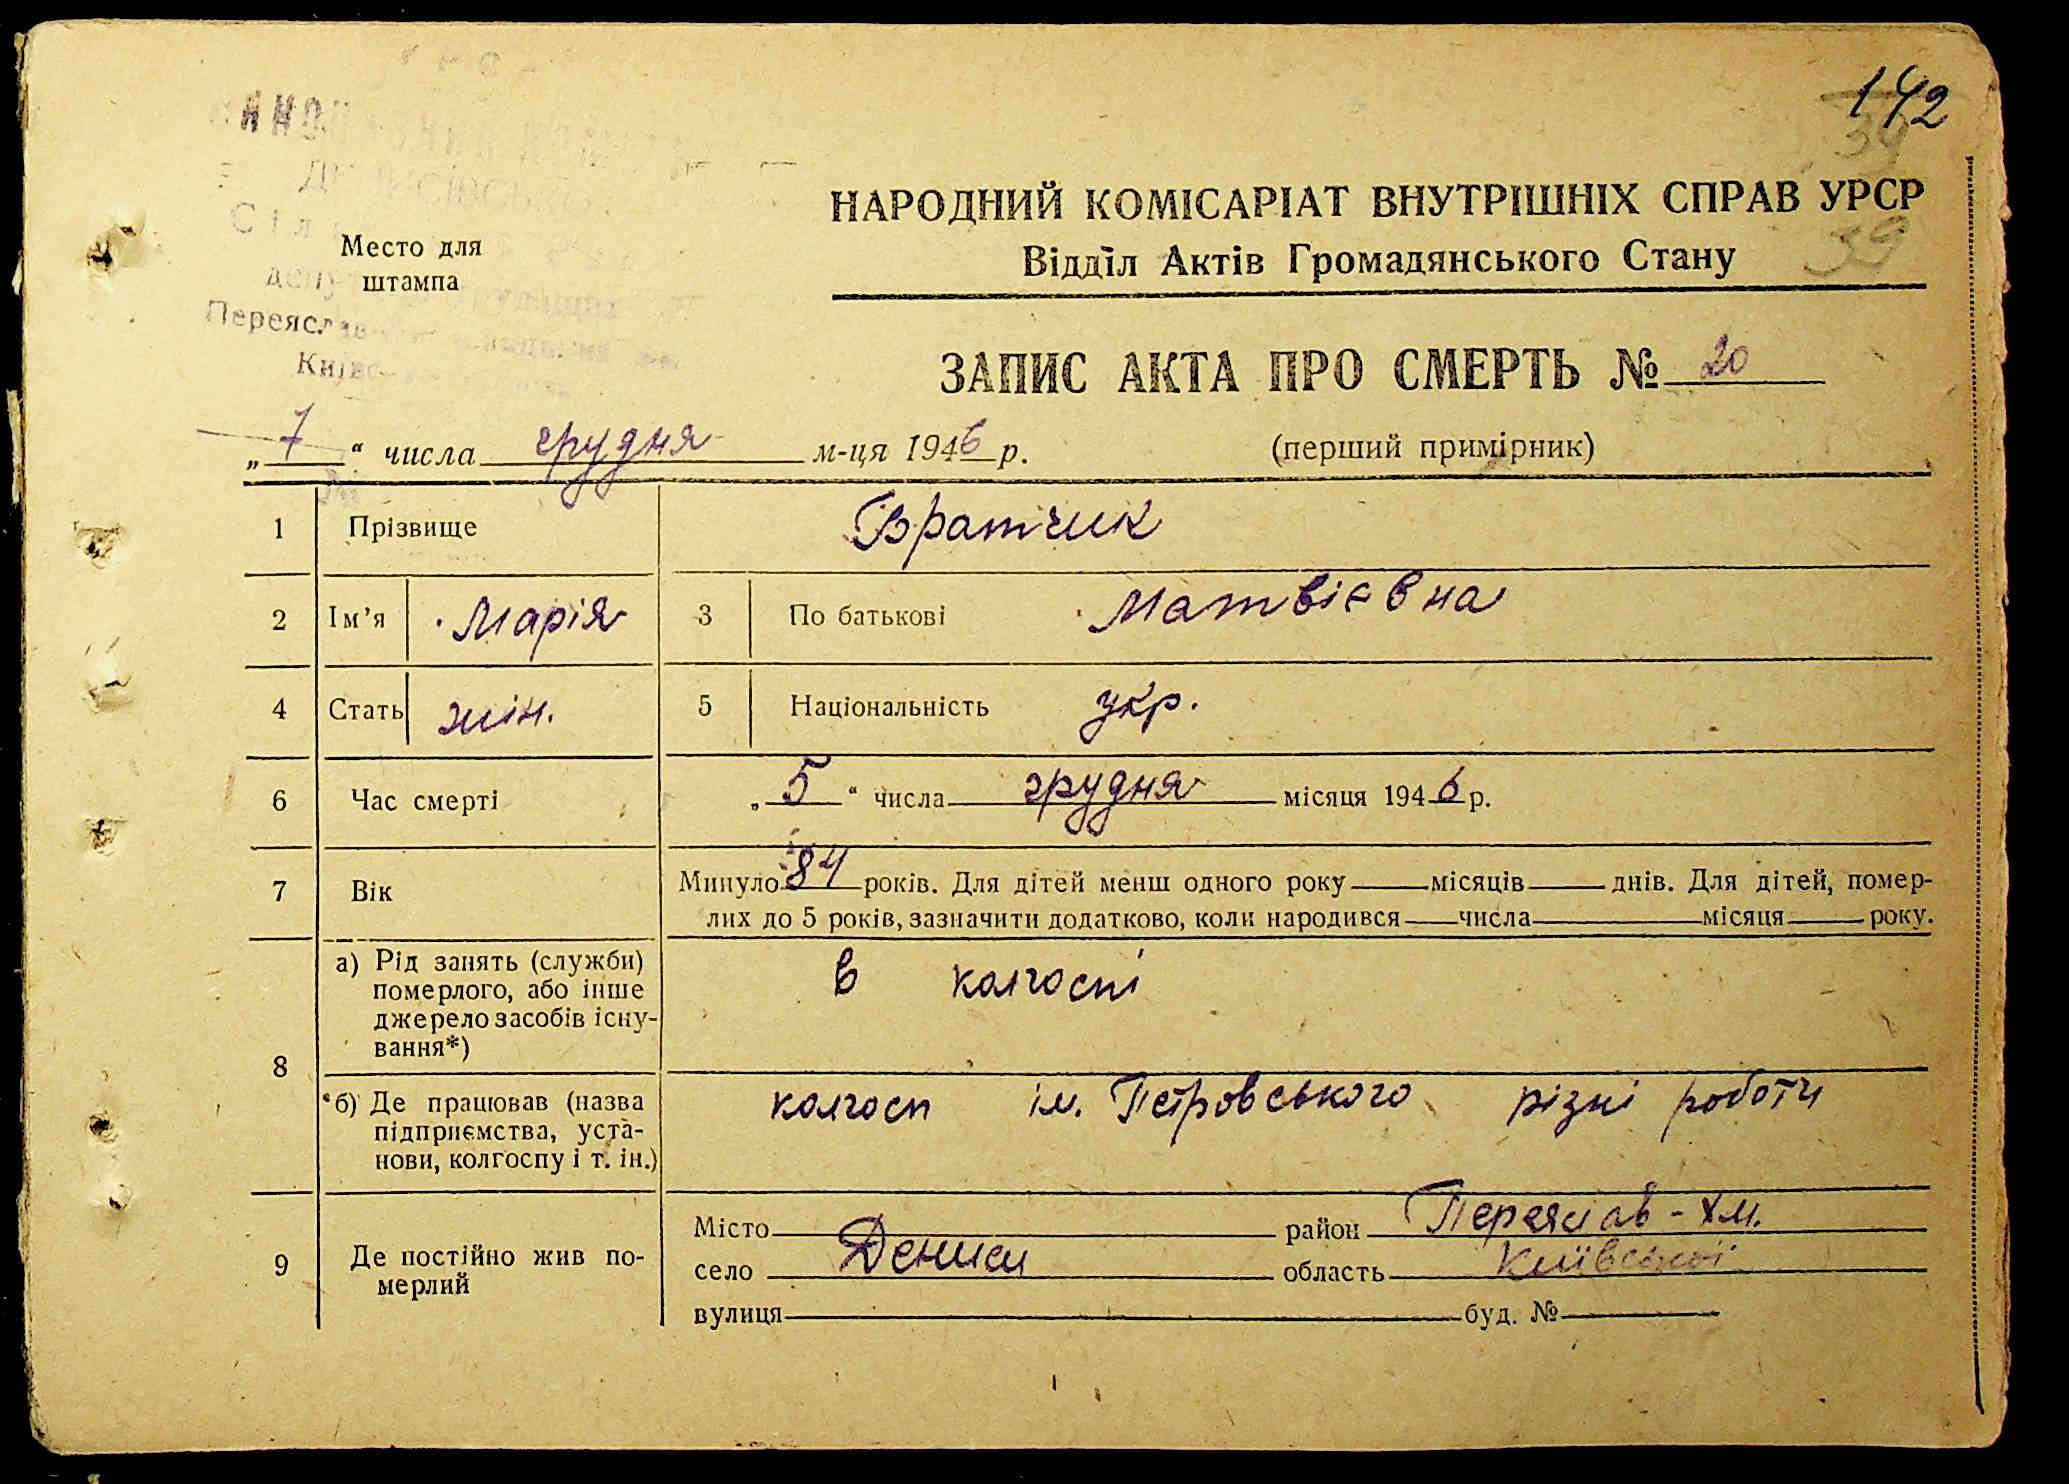 142
39
39
НАРОДНИЙ КОМІСАРІАТ ВНУТРІШНІХ СПРАВ УРСР
Відділ Актів Громадянського Стану
Место для
штампа
Переяслав
ЗАПИС АКТА ПРО СМЕРТЬ № 20
„ 7 “ числа грудня м-ця 1946 р. (перший примірник)
1 Прізвище Братчик
2 Ім’я Марія 3 По батькові Матвієвна
4 Стать жін. 5 Національність укр.
6 Час смерті „ 5 “ числа грудня місяця 1946 р.
7 Вік Минуло 84 років. Для дітей менш одного року місяців днів. Для дітей, помер-
лих до 5 років, зазначити додатково, коли народився числа місяця року.
8 а) Рід занять (служби) в колгоспі
померлого, або інше
джерело засобів існу-
вання*)
б) Де працював (назва колгосп ім. Петровського різні роботи
підприємства, уста-
нови, колгоспу і т. ін.)
9 Де постійно жив по-
мерлий
Місто район Переяслав-Хм.
село Дениси область Київської
вулиця буд. №